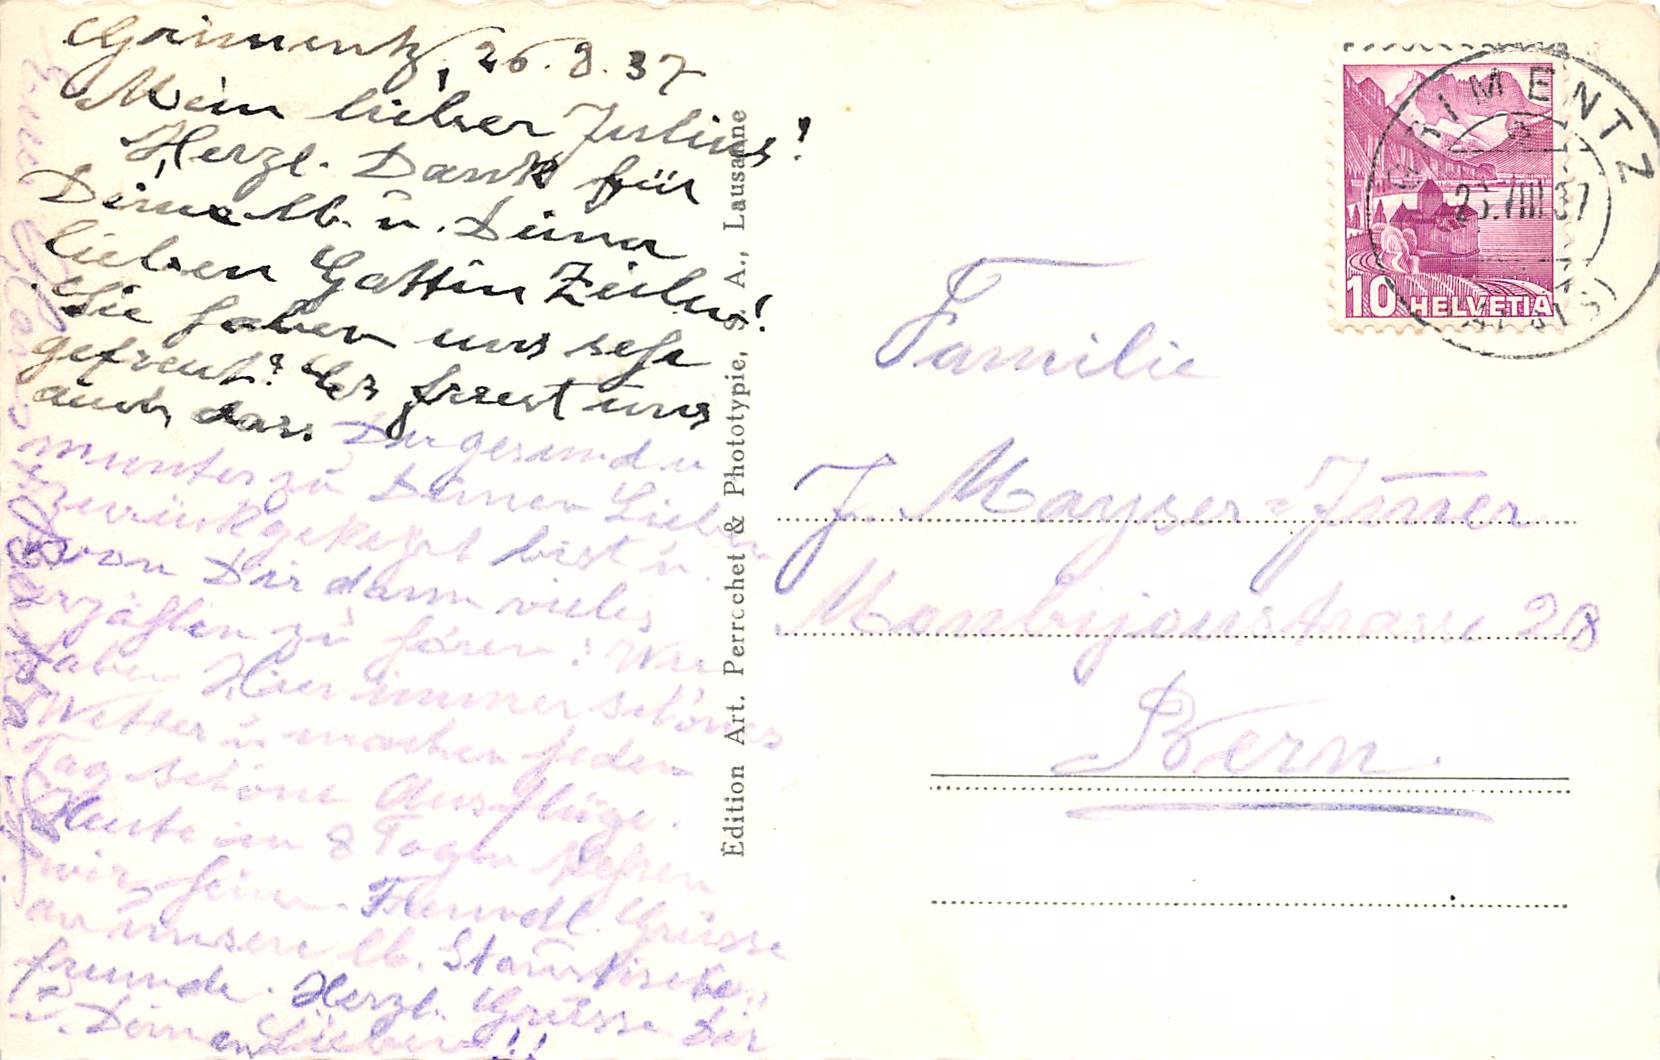 Grimentz, 26.8.37
Mein lieber Julius!
Herzl. Dank für
Deine lb. u. Deiner
lieben Gattin Zeilen!
Sie haben uns sehr
gefreut! Es freut uns
auch, dass Du gesund u
munter zu Deinen Lieben
zurückgekehrt bist u.
von Dir dann vieles
erzählen zu hören! Wir
haben Hier immer schönes
Wetter u machen jeden
Tag schöne Ausflüge.
Heute in 8 Tagen kehren
wir heim. Freundl. Grüsse
an unsere lb. Stammtisch-
freunde. Herzl. Grüsse Dir
u. Deinen Lieben!!
Edition Art. Perrochet & Phototypie, S. A., Lausanne
GRIMENTZ
VIII 37
10 HELVETIA
Familie
J. Mayser-
Monbijoustrasse 28
Bern.